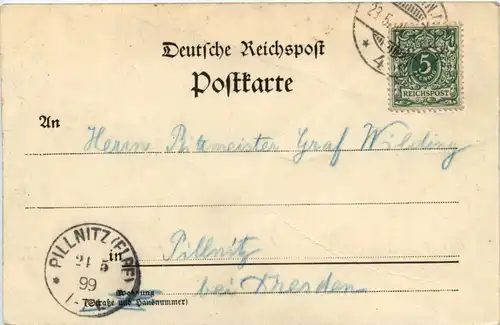 23.5.
* 4
5
PFENNIG
REICHSPOST
Deutsche Reichspost
Postkarte
An
Herrn Rittmeister Graf Wilding
in
Pillnitz
bei Dresden
Wohnung
(Straße und Hausnummer)
* PILLNITZ (ELBE)
24 5
99